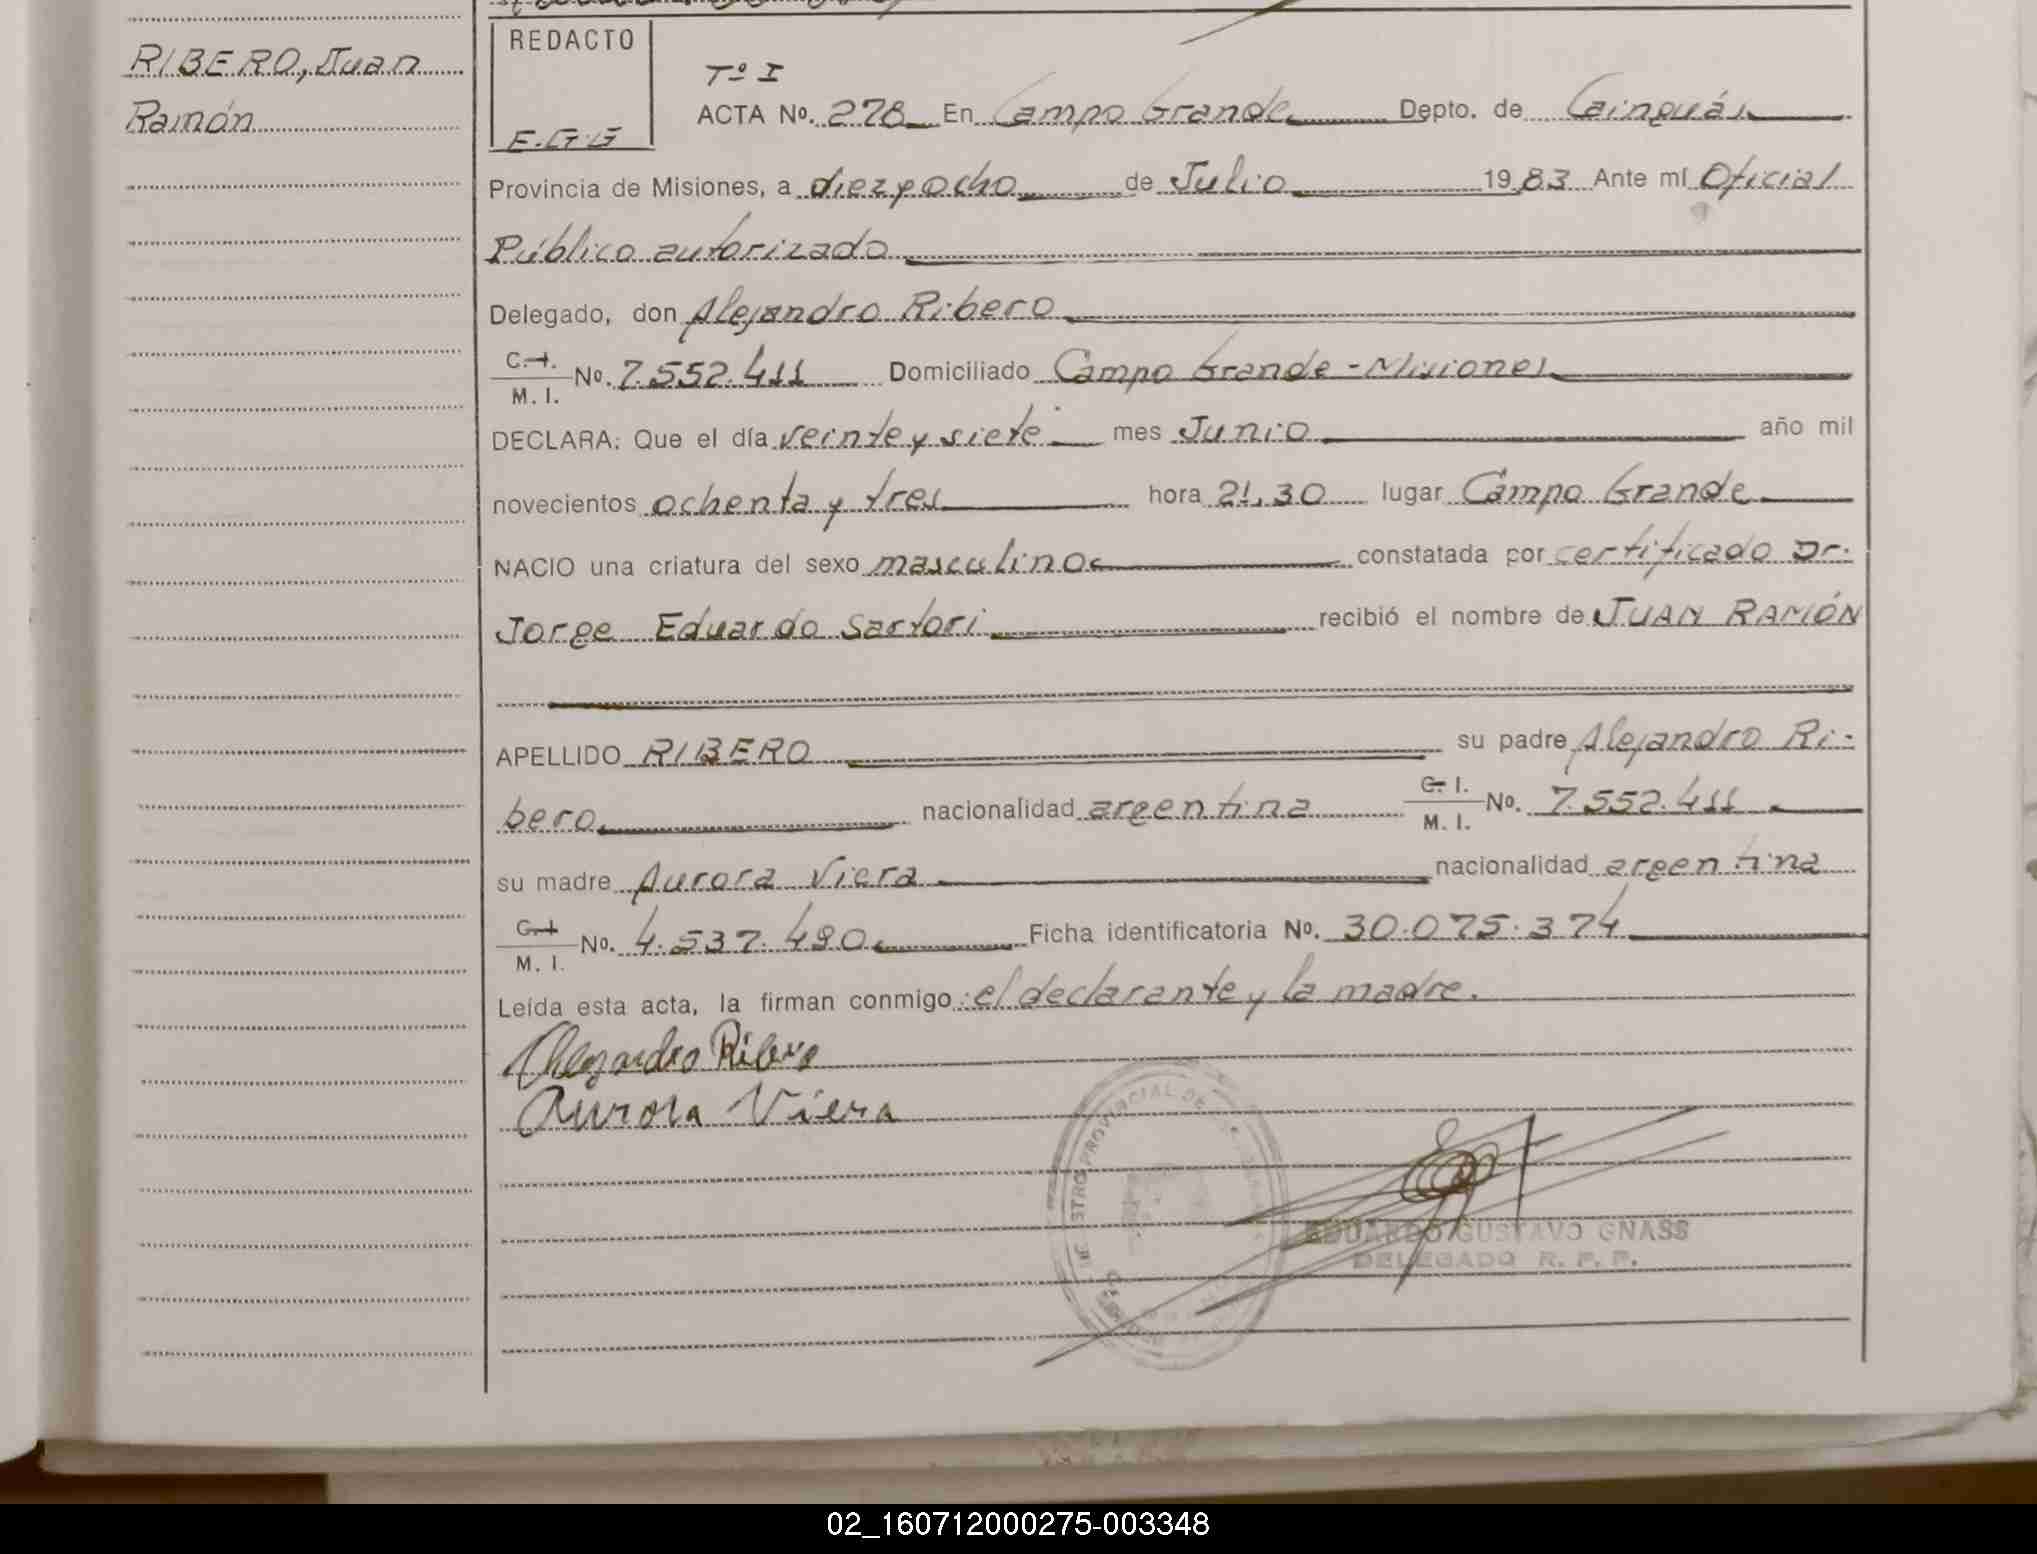 RIBERO, Juan
Ramón
REDACTO
E.G.G
Tº I
ACTA No. 278 En Campo Grande Depto. de Cainguás
Provincia de Misiones, a diez y ocho de Julio 1983 Ante mí Oficial
Público autorizado
Delegado, don Alejandro Ribero
C. I.
M. I. No. 7.552.411 Domiciliado Campo Grande - Misiones
DECLARA: Que el día veinte y siete mes Junio año mil
novecientos ochenta y tres hora 21,30 lugar Campo Grande
NACIO una criatura del sexo masculino constatada por certificado Dr.
Jorge Eduardo Sartori recibió el nombre de JUAN RAMÓN
APELLIDO RIBERO su padre Alejandro Ri-
bero nacionalidad argentina C. I.
M. I. No. 7.552.411
su madre Aurora Viera nacionalidad argentina
C. I.
M. I. No. 4.537.490 Ficha identificatoria No. 30.075.374
Leída esta acta, la firman conmigo: el declarante y la madre.
Alejandro Ribero
Aurora Viera
PROVINCIAL DE
EDUARDO GUSTAVO GNASS
DELEGADO R. P. P.
02_160712000275-003348